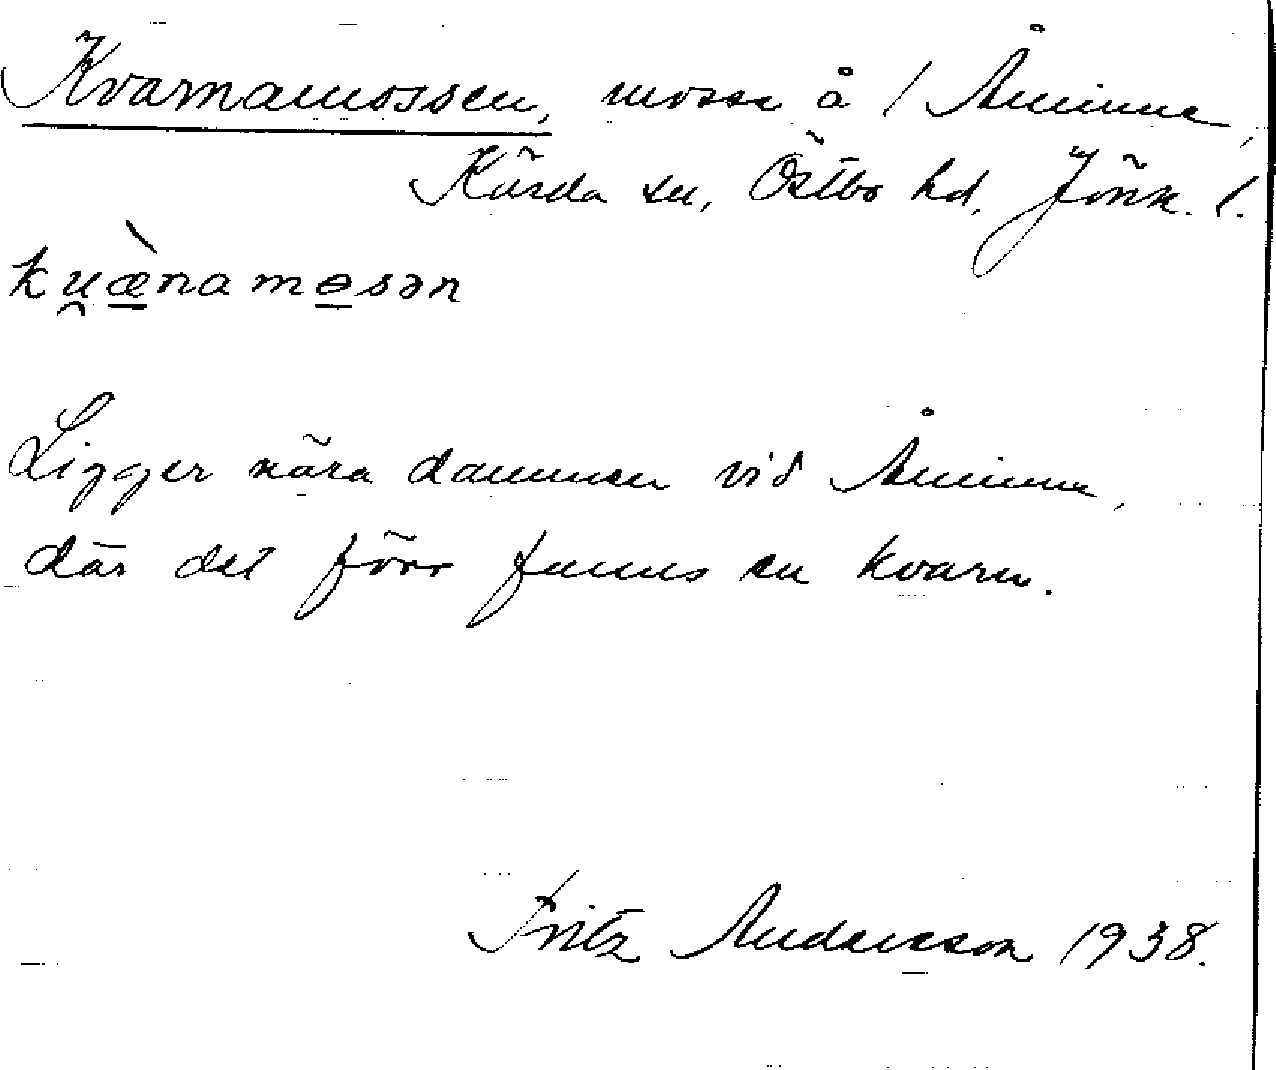 Kvarnamossen, mosse å 1 Åminne,
Kärda sn, Östbo hd, Jönk. l.
ku̯æ̀namɵsən
Ligger nära dammen vid Åminne,
där det förr fanns en kvarn.
Fritz Andersson 1938.